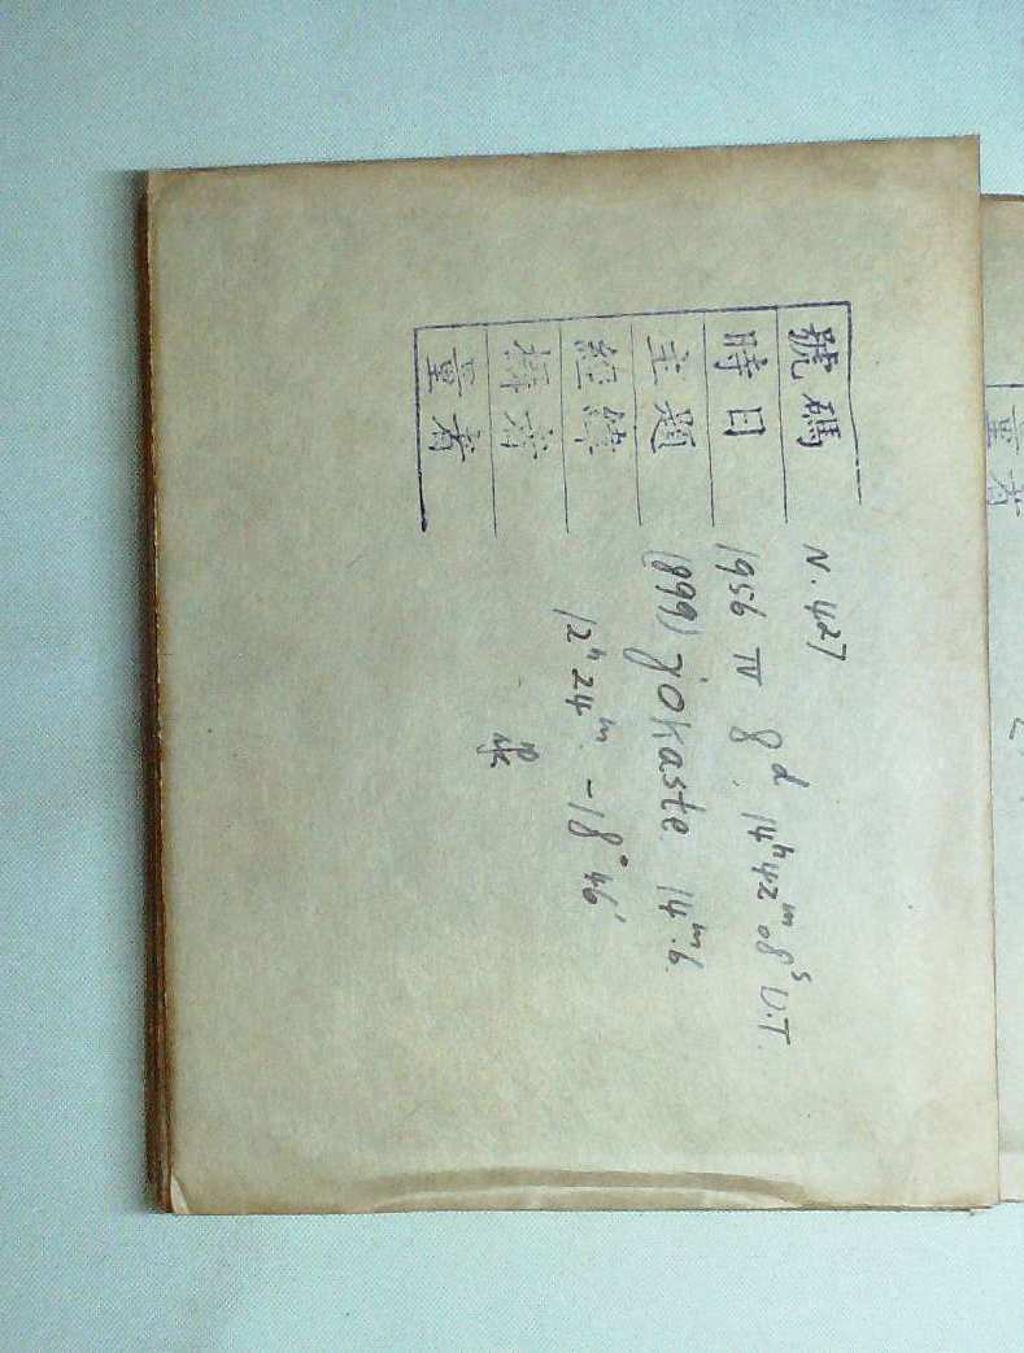 號碼 N. 427
時日 1956 IV 8ᵈ 14ʰ42ᵐ08ˢ U.T.
主題 (899) Jokaste 14ᵐ.6
經緯 12ʰ24ᵐ -18°46'
攝者
量者
量者